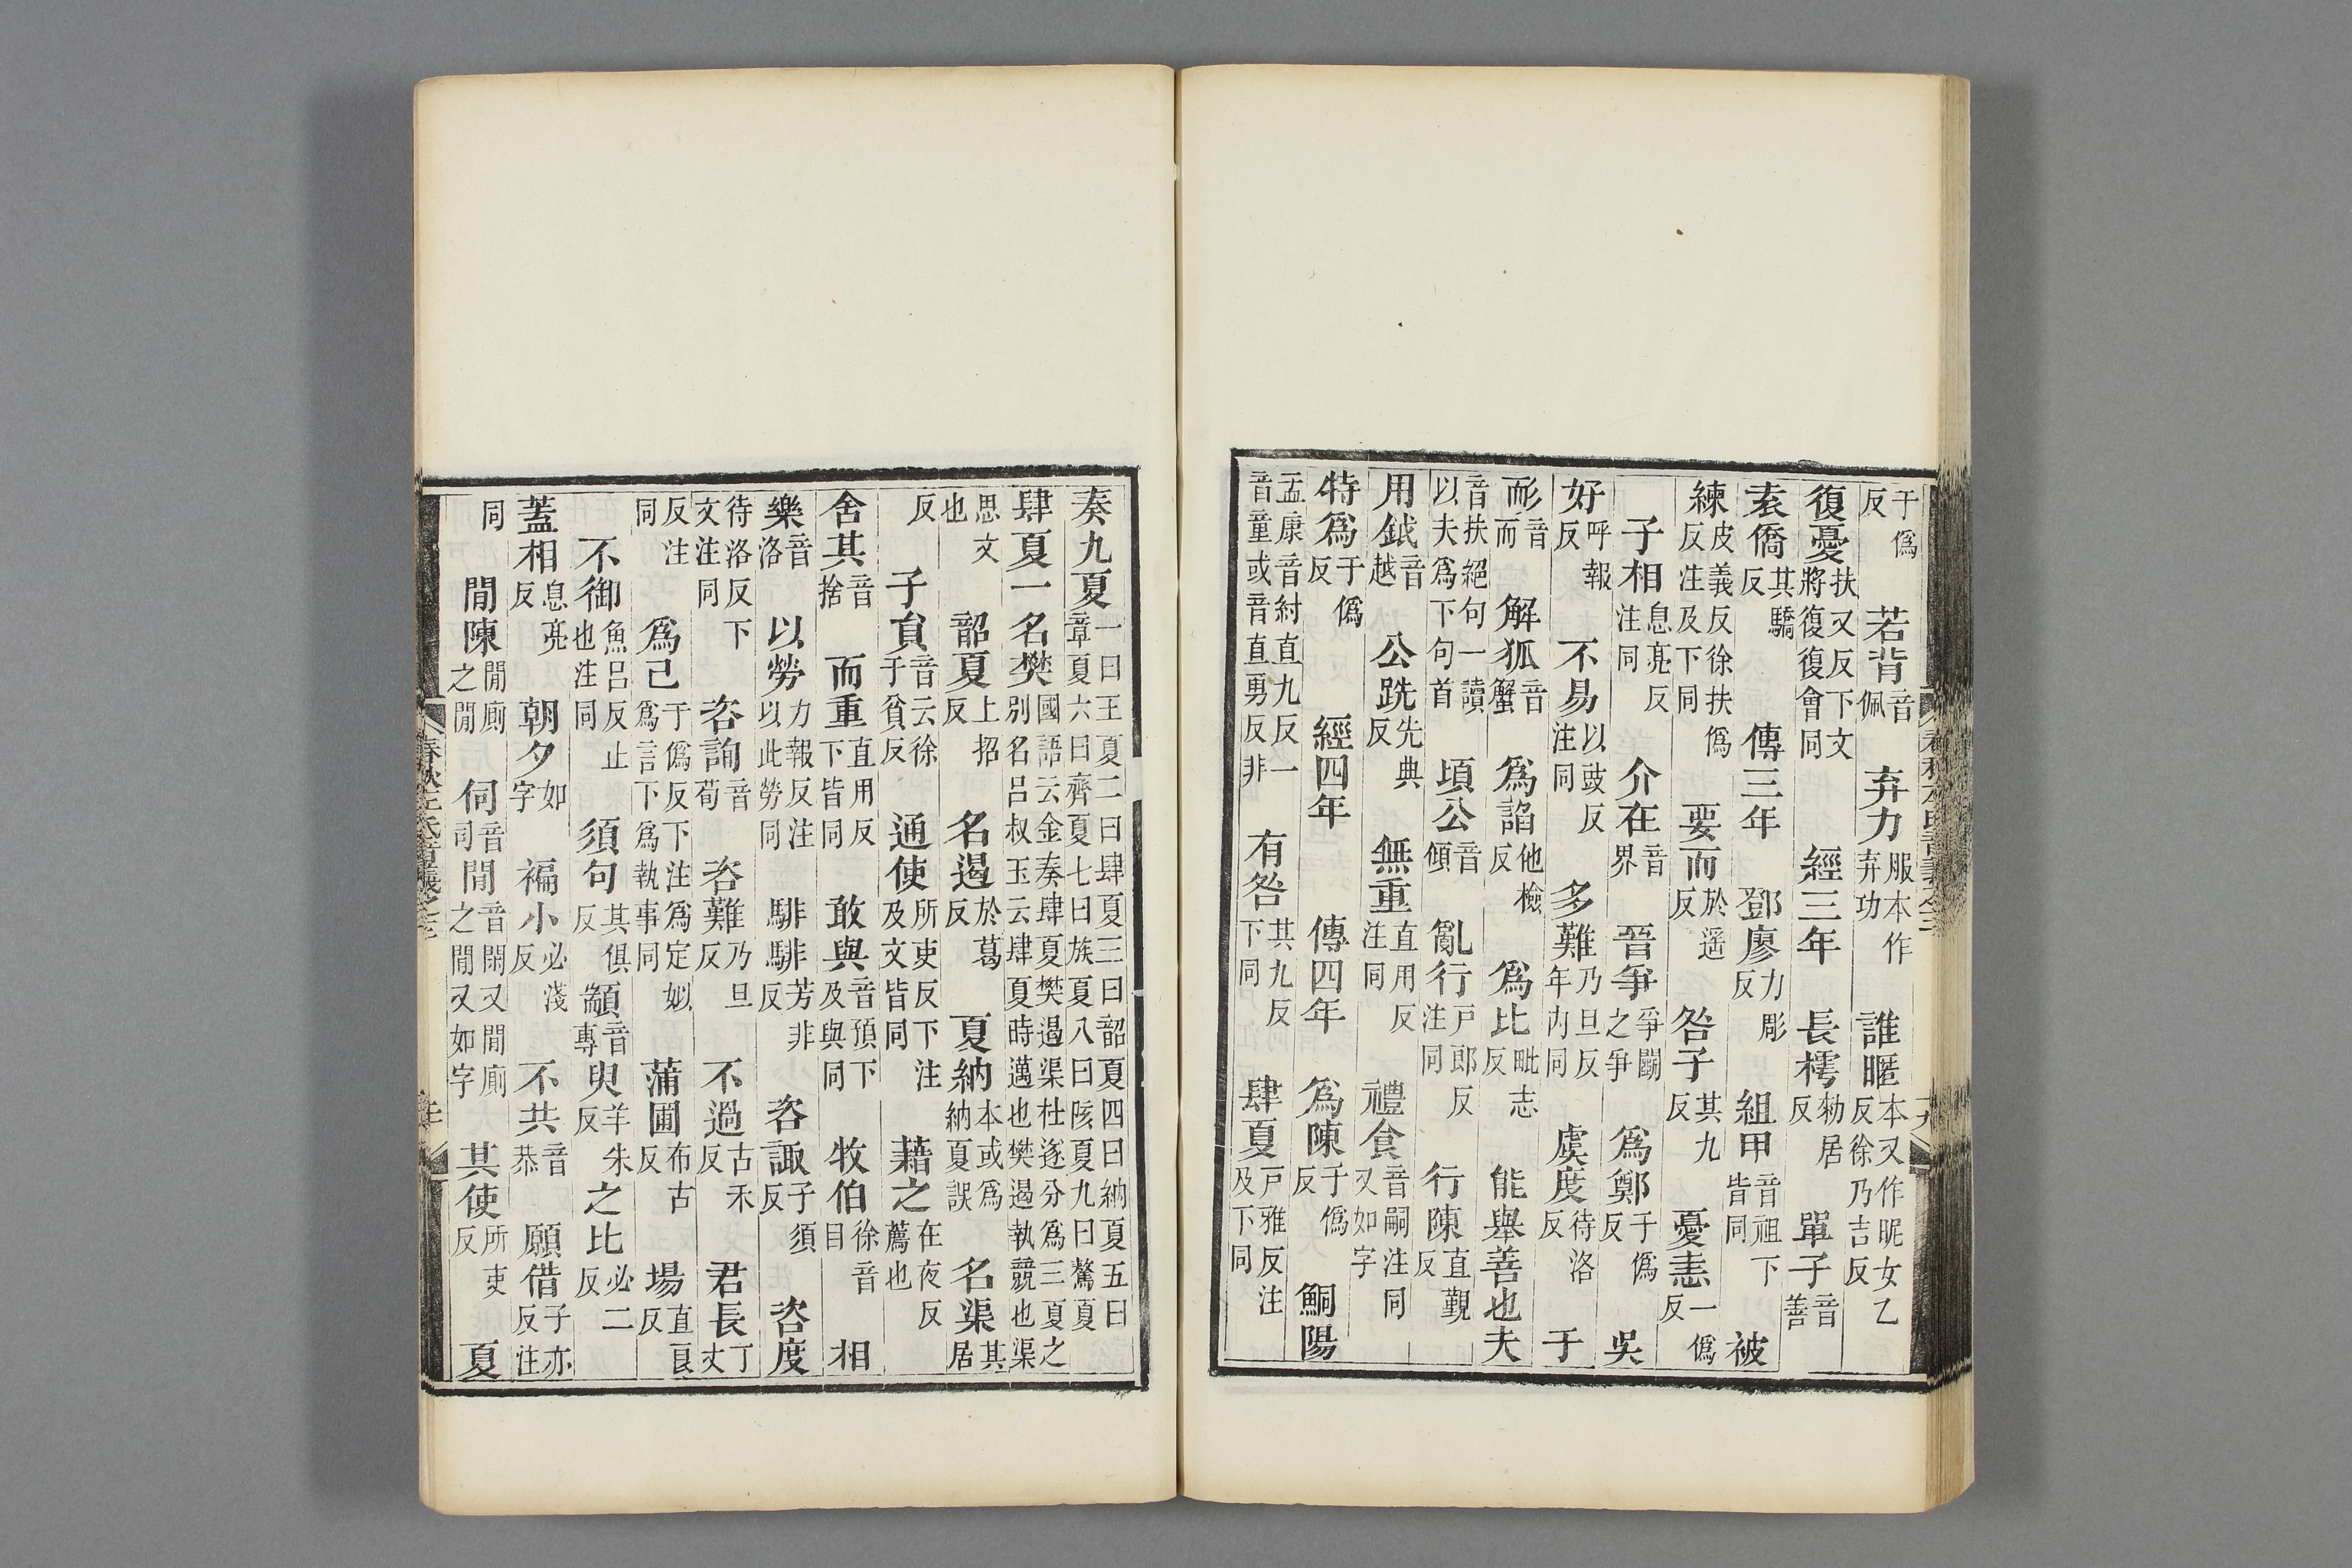 于僞反 若背音佩 弃力服本作弃功 誰暱本又作昵女乙反徐乃吉反
復憂扶又反下文將復復會同 經三年 長樗勑居反 單子音善
袁僑其驕反 傳三年 鄧廖力彫反 組甲音祖下皆同 被
練皮義反徐扶僞反注及下同 要而於遥反 咎子其九反 憂恚一僞反
子相息亮反注同 介在音界 晉爭爭鬭之爭 爲鄭于僞反 吳
好呼報反 不易以豉反注同 多難乃旦反年內同 虞度待洛反 于
耏音而 解狐音蟹 爲諂他檢反 爲比毗志反 能舉善也夫
音扶絕句一讀以夫爲下句首 頃公音傾 亂行戶郎反注同 行陳直覲反
用鉞音越 公跣先典反 無重直用反注同 禮食音嗣注同又如字
特爲于僞反 經四年 傳四年 爲陳于僞反 鮦陽
孟康音紂直九反一音童或音直勇反非 有咎其九反下同 肆夏戶雅反注及下同
奏九夏一曰王夏二曰肆夏三曰韶夏四曰納夏五曰章夏六曰齊夏七曰族夏八曰陔夏九曰驁夏
肆夏一名樊國語云金奏肆夏樊遏渠杜逐分爲三夏之別名呂叔玉云肆夏時邁也樊遏執競也渠
思文也 韶夏上招反 名遏於葛反 夏納本或爲納夏誤 名渠其居
反 子貟音云徐于貧反 通使所吏反下注及文皆同 藉之在夜反薦也
舍其音捨 而重直用反下皆同 敢與音預下及與同 牧伯徐音目 相
樂音洛 以勞力報反注以此勞同 騑騑芳非反 咨諏子須反 咨度
待洛反下文注同 咨詢音荀 咨難乃旦反 不過古禾反 君長丁丈
反注同 爲己于僞反下注爲定姒爲言下爲執事同 蒲圃布古反 場直良反
不御魚呂反止也注同 須句其俱反 顓音專 臾羊朱反 之比必二反
蓋相息亮反 朝夕如字 褊小必淺反 不共音恭 願借子亦反注
同 閒陳閒廁之閒 伺音司 閒音閑又閒廁之閒又如字 其使所吏反 夏